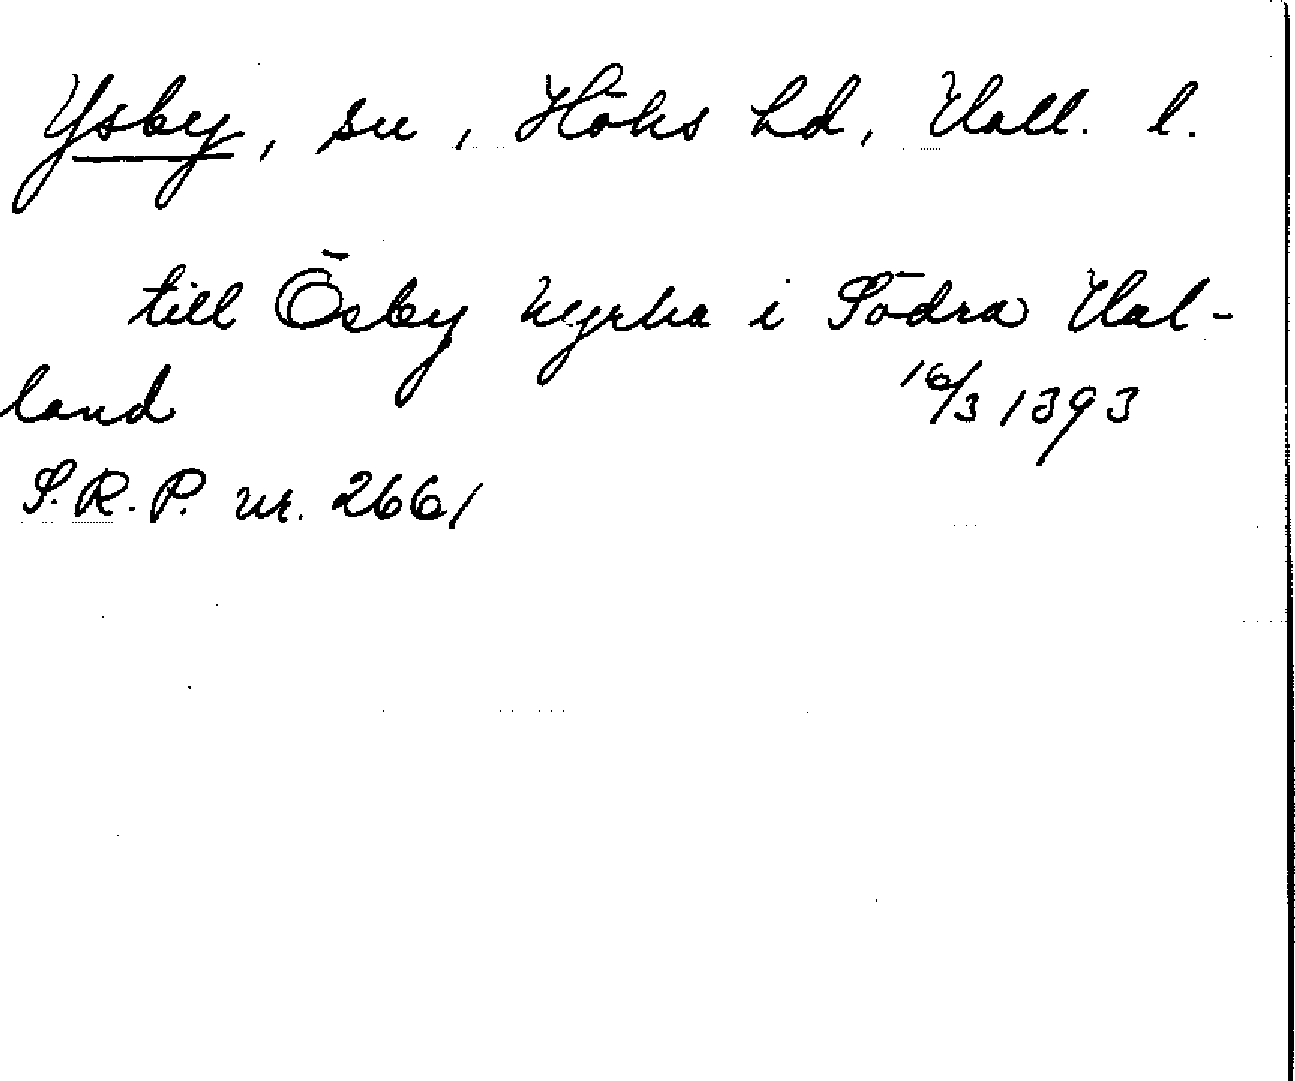 Ysby, sn, Höks hd, Hall. l.
till Ösby kyrka i Södra Hal-
land 16/3 1393
S.R.P. nr. 2661